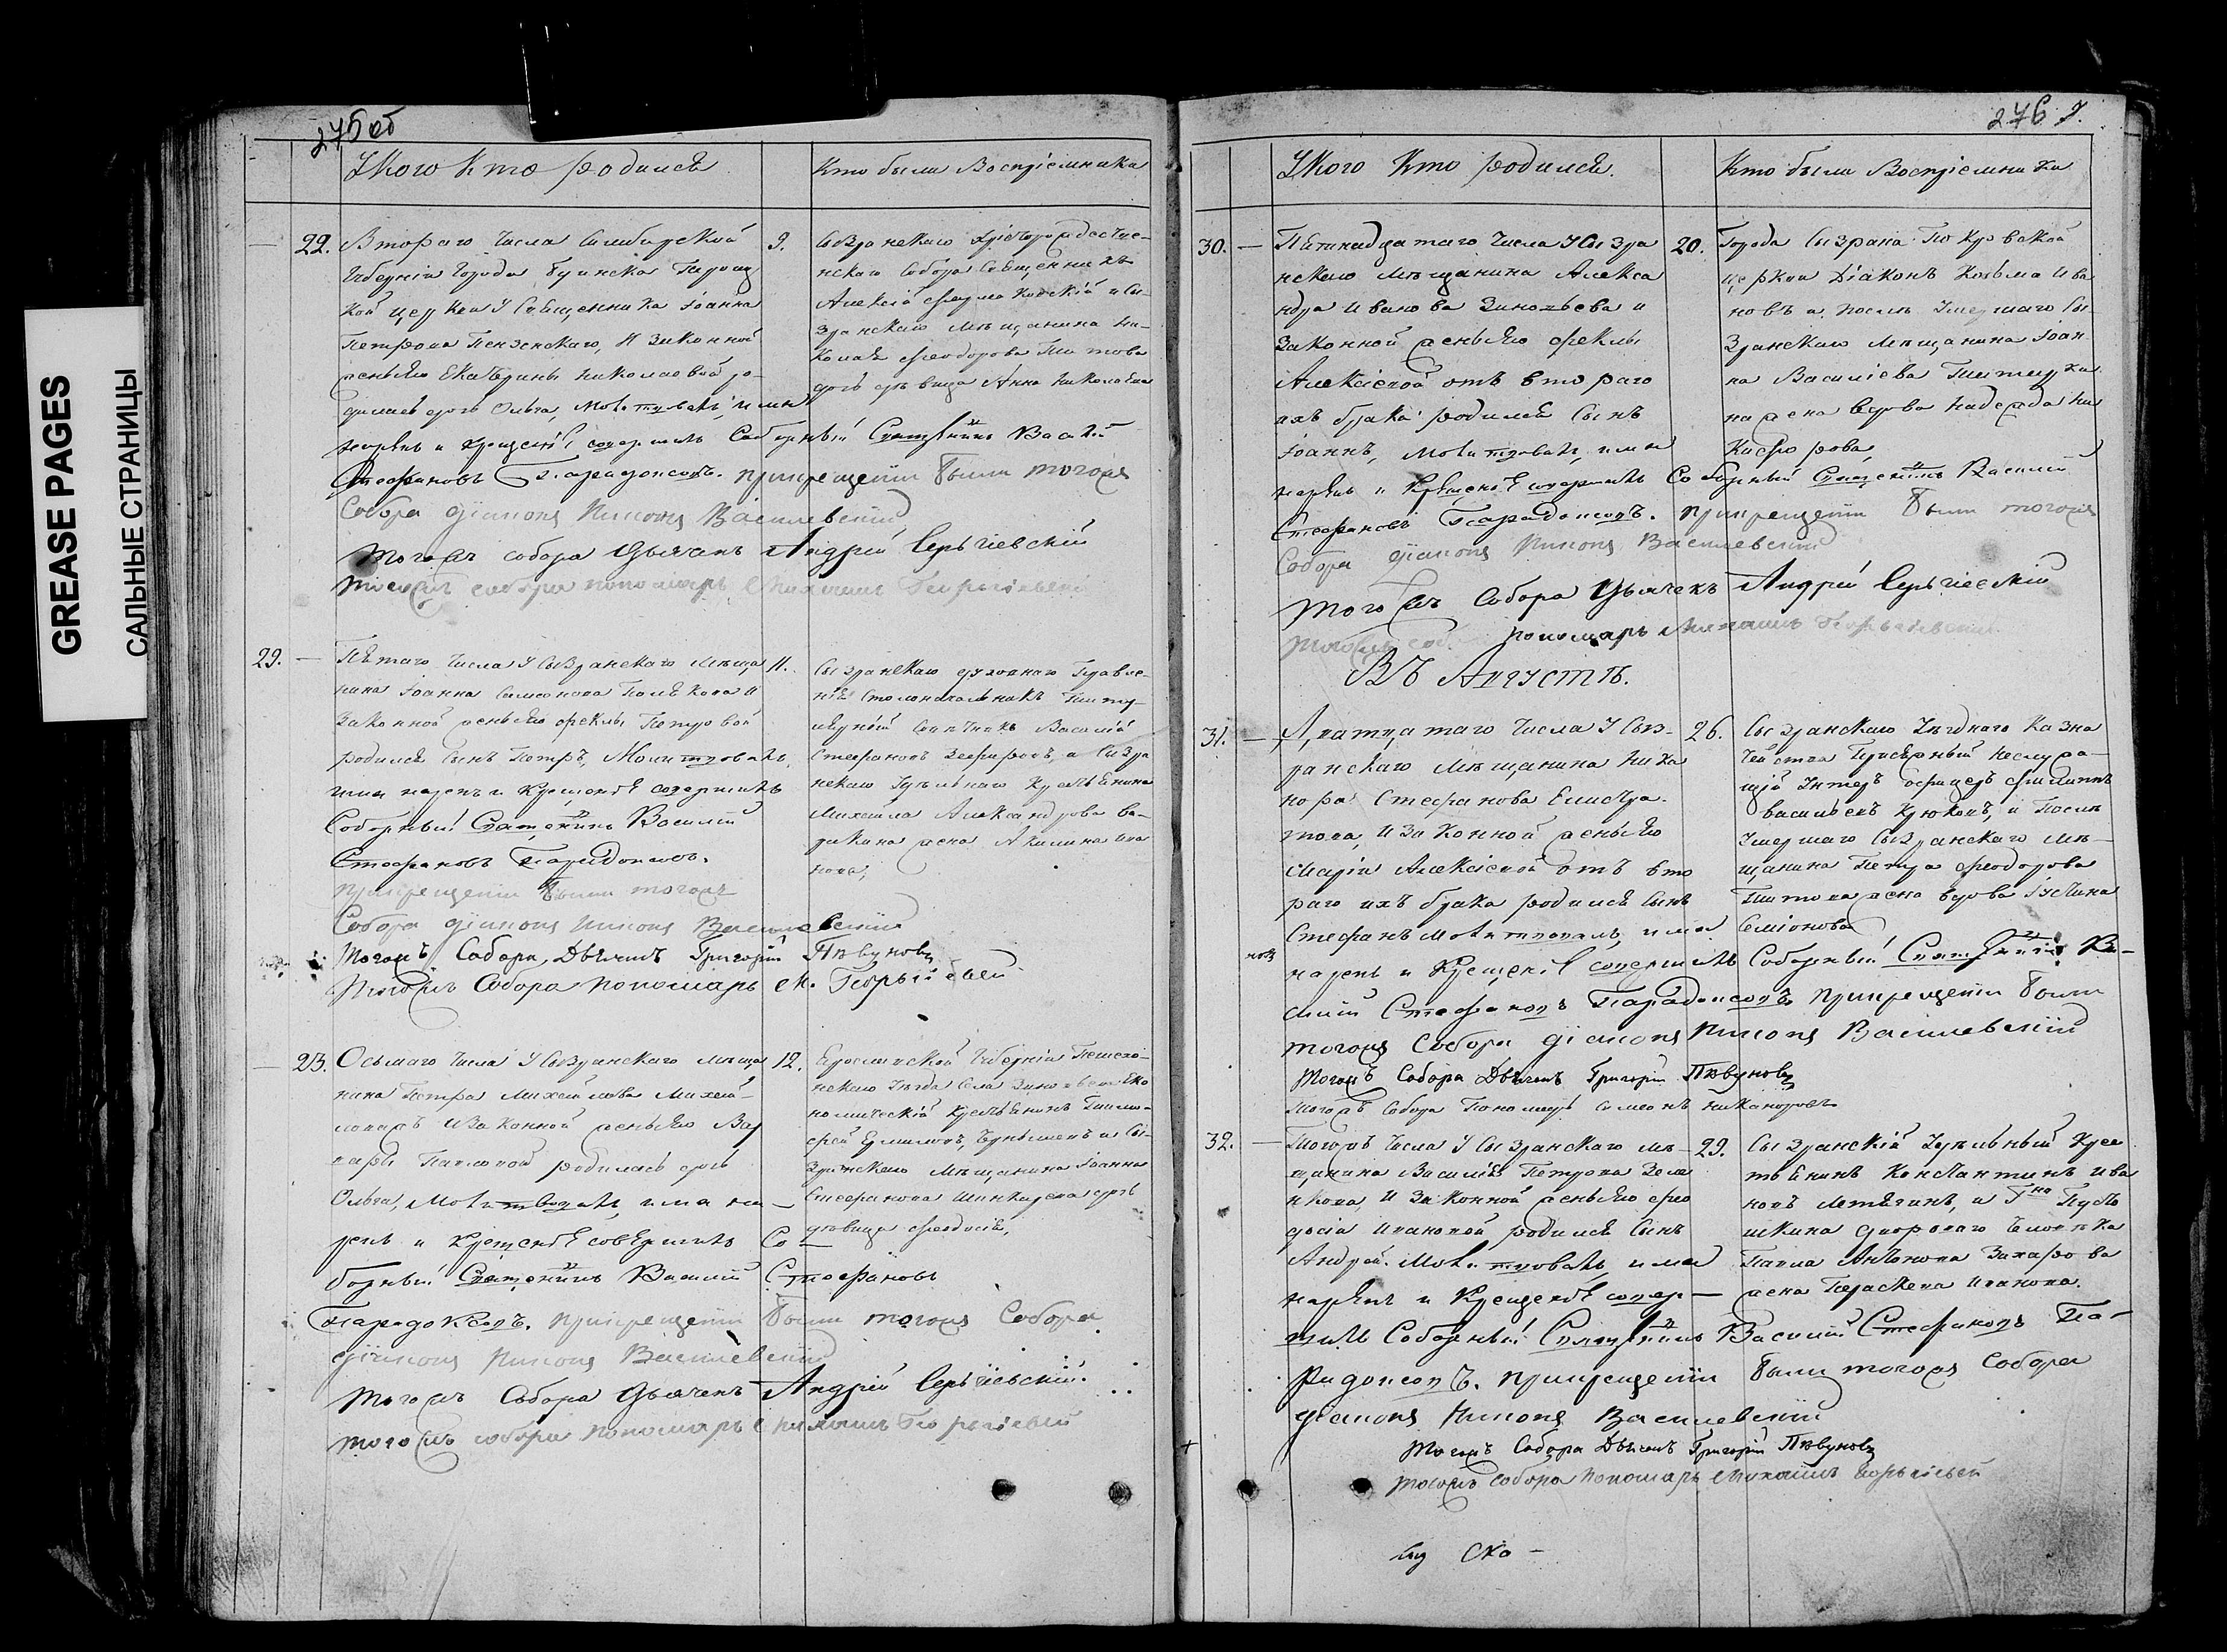 GREASE PAGES
САЛЬНЫЕ СТРАНИЦЫ
275 об
У кого кто родился
Кто были Воспріемники
22.
Втораго числа Симбирской
Губерніи города Буинска Троиц
кой церкви у Священника Іоанна
Петрова Пензенскаго, и законной
жены его Екатерины Николаевой ро-
дилась дочь Ольга, молитвовалъ, имя
нарекъ и крещеніе совершилъ Соборный Священникъ Василій
Стефановъ Парадоксовъ. При крещеніи были тогожъ
Собора діаконъ Никонъ Василевскій
Тогожъ собора дьячекъ Андрей Сергіевскій
Тогожъ собора пономарь Михаилъ Георгіевскій
9.
Сызранскаго Христорождестве-
нскаго Собора Священникъ
Алексій и Сы-
зранскаго мѣщанина Ни-
колая Феодорова Титова
дочь дѣвица Анна Николаева
29.
Пятаго числа у Сызранскаго мѣща
нина Іоанна Симеонова Полякова и
законной жены его Феклы Петровой
родился сынъ Петръ, Молитвовалъ,
имя нарекъ и крещеніе совершилъ
Соборный Священникъ Василій
Стефановъ Парадоксовъ.
При крещеніи были тогожъ
Собора діаконъ Никонъ Василевскій
Тогожъ Собора Дьячекъ Григорій Пѣвуновъ
Тогожъ Собора пономарь М. Георгіевскій
11.
Сызранскаго духовнаго Правле-
нія Столоначальникъ Титу-
лярный Совѣтникъ Василій
Стефановъ Зефировъ, а Сызра
нскаго Удѣльнаго крестьянина
Михаила Александрова
жена Акилина Ива
нова,
23.
Осьмаго числа у Сызранскаго мѣща
нина Петра Михайлова Михай-
лова и законной жены его Вар
вары Павловой родилась дочь
Ольга, Молитвовалъ, имя на-
рекъ и крещеніе совершилъ Со-
борный Священникъ Василій Стефановъ
Парадоксовъ. При крещеніи были тогожъ Собора
діаконъ Никонъ Василевскій
Тогожъ Собора дьячекъ Андрей Сергіевскій.
Тогожъ собора пономарь Михаилъ Георгіевскій
12.
Ярославской Губерніи Пошехо-
нскаго уѣзда села Эко
номическій крестьянинъ Тимо-
фей а Сы-
зранскаго мѣщанина Іоанна
Стефанова дочь
дѣвица Феодосія,
276
У кого кто родился.
Кто были Воспріемники
30.
Пятинадцатаго числа у Сызра
нскаго мѣщанина Алекса
ндра Иванова Зиновьева и
законной жены его Феклы
Алексіевой отъ втораго
ихъ брака родился сынъ
Іоаннъ, молитвовалъ, имя
нарекъ и крещеніе совершилъ Соборный Священникъ Василій
Стефановъ Парадоксовъ. При крещеніи были тогожъ
Собора діаконъ Никонъ Василевскій
Тогожъ Собора Дьячекъ Андрей Сергіевскій
Тогожъ соб. пономарь Михаилъ Георгіевскій
20.
Города Сызрана Покровской
церкви Діаконъ Козьма Ива
новъ и послѣ умершаго Сы
зранскаго мѣщанина Іоан
на Василіева
на жена вдова Надежда Ни
кифорова,
Въ Августѣ.
31.
Двадцатаго числа у Сыз-
ранскаго мѣщанина Ника
нора Стефанова Елистра-
това, и законной жены его
Маріи Алексіевой отъ вто
раго ихъ брака родился сынъ
Стефанъ молитвовалъ, имя
нарекъ и крещеніе совершилъ Соборный Священникъ Ва-
силій Стефановъ Парадоксовъ При крещеніи были
тогожъ Собора діаконъ Никонъ Василевскій
Тогожъ Собора Дьячекъ Григорій Пѣвуновъ
Тогожъ Собора Пономарь Симеонъ Никаноровъ
26.
Сызранскаго Уѣзднаго Казна
чейства Присяжный неслужа-
щій Унтеръ офицеръ Филиппъ
Васильевъ Крюковъ, и послѣ
умершаго Сызранскаго мѣ-
щанина Петра Феодорова
Титова жена вдова Іустина
Семіонова
32.
Тогожъ числа у Сызранскаго мѣ-
щанина Василія Петрова
и законной жены его Фео
досіи Ивановой родился сынъ
Андрей. Молитвовалъ, имя
нарекъ и крещеніе совер-
шилъ Соборный Священникъ Василій Стефановъ Па-
радоксовъ. При крещеніи были тогожъ Собора
діаконъ Никонъ Василевскій
Тогожъ Собора Дьячекъ Григорій Пѣвуновъ
Тогожъ собора пономарь Михаилъ Георгіевскій
29.
Сызранскій Удѣльный крес
тьянинъ Константинъ Ива
новъ Летягинъ, и Г-на Пусто
шкина двороваго человѣка
Павла Антонова Захарова
жена Параскева Иванова.
ску